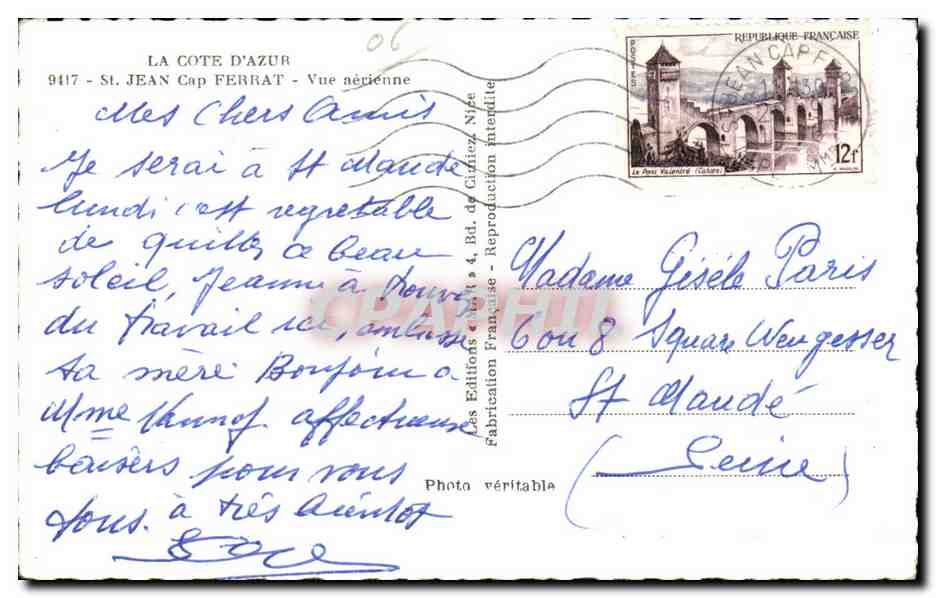 LA COTE D'AZUR
9417 - St. JEAN Cap FERRAT - Vue aérienne
06
Mes Chers Amis
Je serai à St Mandé
lundi c'est regretable
de quitter ce beau
soleil, Jeanne à trouvé
du travail ici, embrasse
sa mère Bonjour a
Mme affectueux
baisers pour vous
tous. à très bientôt
Les Editions « MAR » 4, Bd. de Cimiez, Nice
Fabrication Française - Reproduction interdite
Photo véritable
REPUBLIQUE FRANÇAISE
POSTES
Le Pont Valentré (Cahors)
12f
JEAN CAP F
Madame Gisèle Paris
6 ou 8 Square Nungesser
St Mandé
(Seine)
CPAPHIL